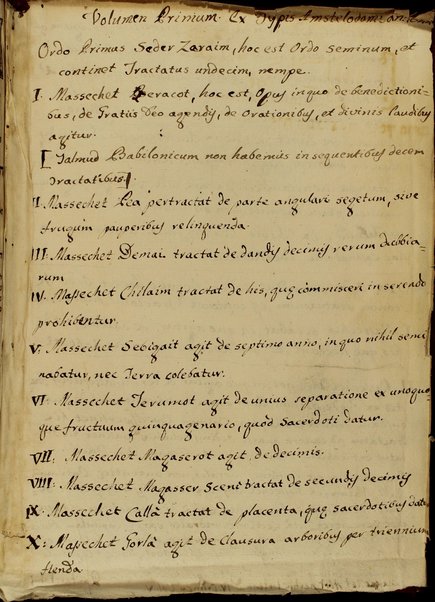 Volumen Primium. Ex Typis Amstelodam: an:
Ordo Primus Seder Zeraim, hoc est Ordo Seminum, et
continet Tractatus undecim, nempe.
I. Massechet Beracot, hoc est, Opus in quo de benedictioni-
bus, de Gratiis Deo agendis, de Orationibus, et divinis laudibus
agitur.
[Talmud Babilonicum non habemus in sequentibus decem
tractatibus].
II. Massechet Pea pertractat de parte angulari segetum, sive
frugum pauperibus relinquenda.
III. Massechet Demai tractat de dandis decimis rerum dubbia-
rum
IV. Massechet Chilaim tractat de his, quę commisceri in serendo
prohibentur.
V. Massechet Sebigait agit de septimo anno, in quo nihil semi
nabatur, nec Terra colebatur.
VI. Massechet Terumot agit de unius separatione ex unoquo-
que fructuum quinquagenario, quod Sacerdoti datur.
VII. Massechet Magaserot agit de decimis.
VIII. Massechet Magasser Sceni tractat de secundis decimis
IX. Massechet Callà tractat de placenta, quę sacerdotibus datur
X. Massechet Gorlà agit de Clausura arboribus per triennium
fienda